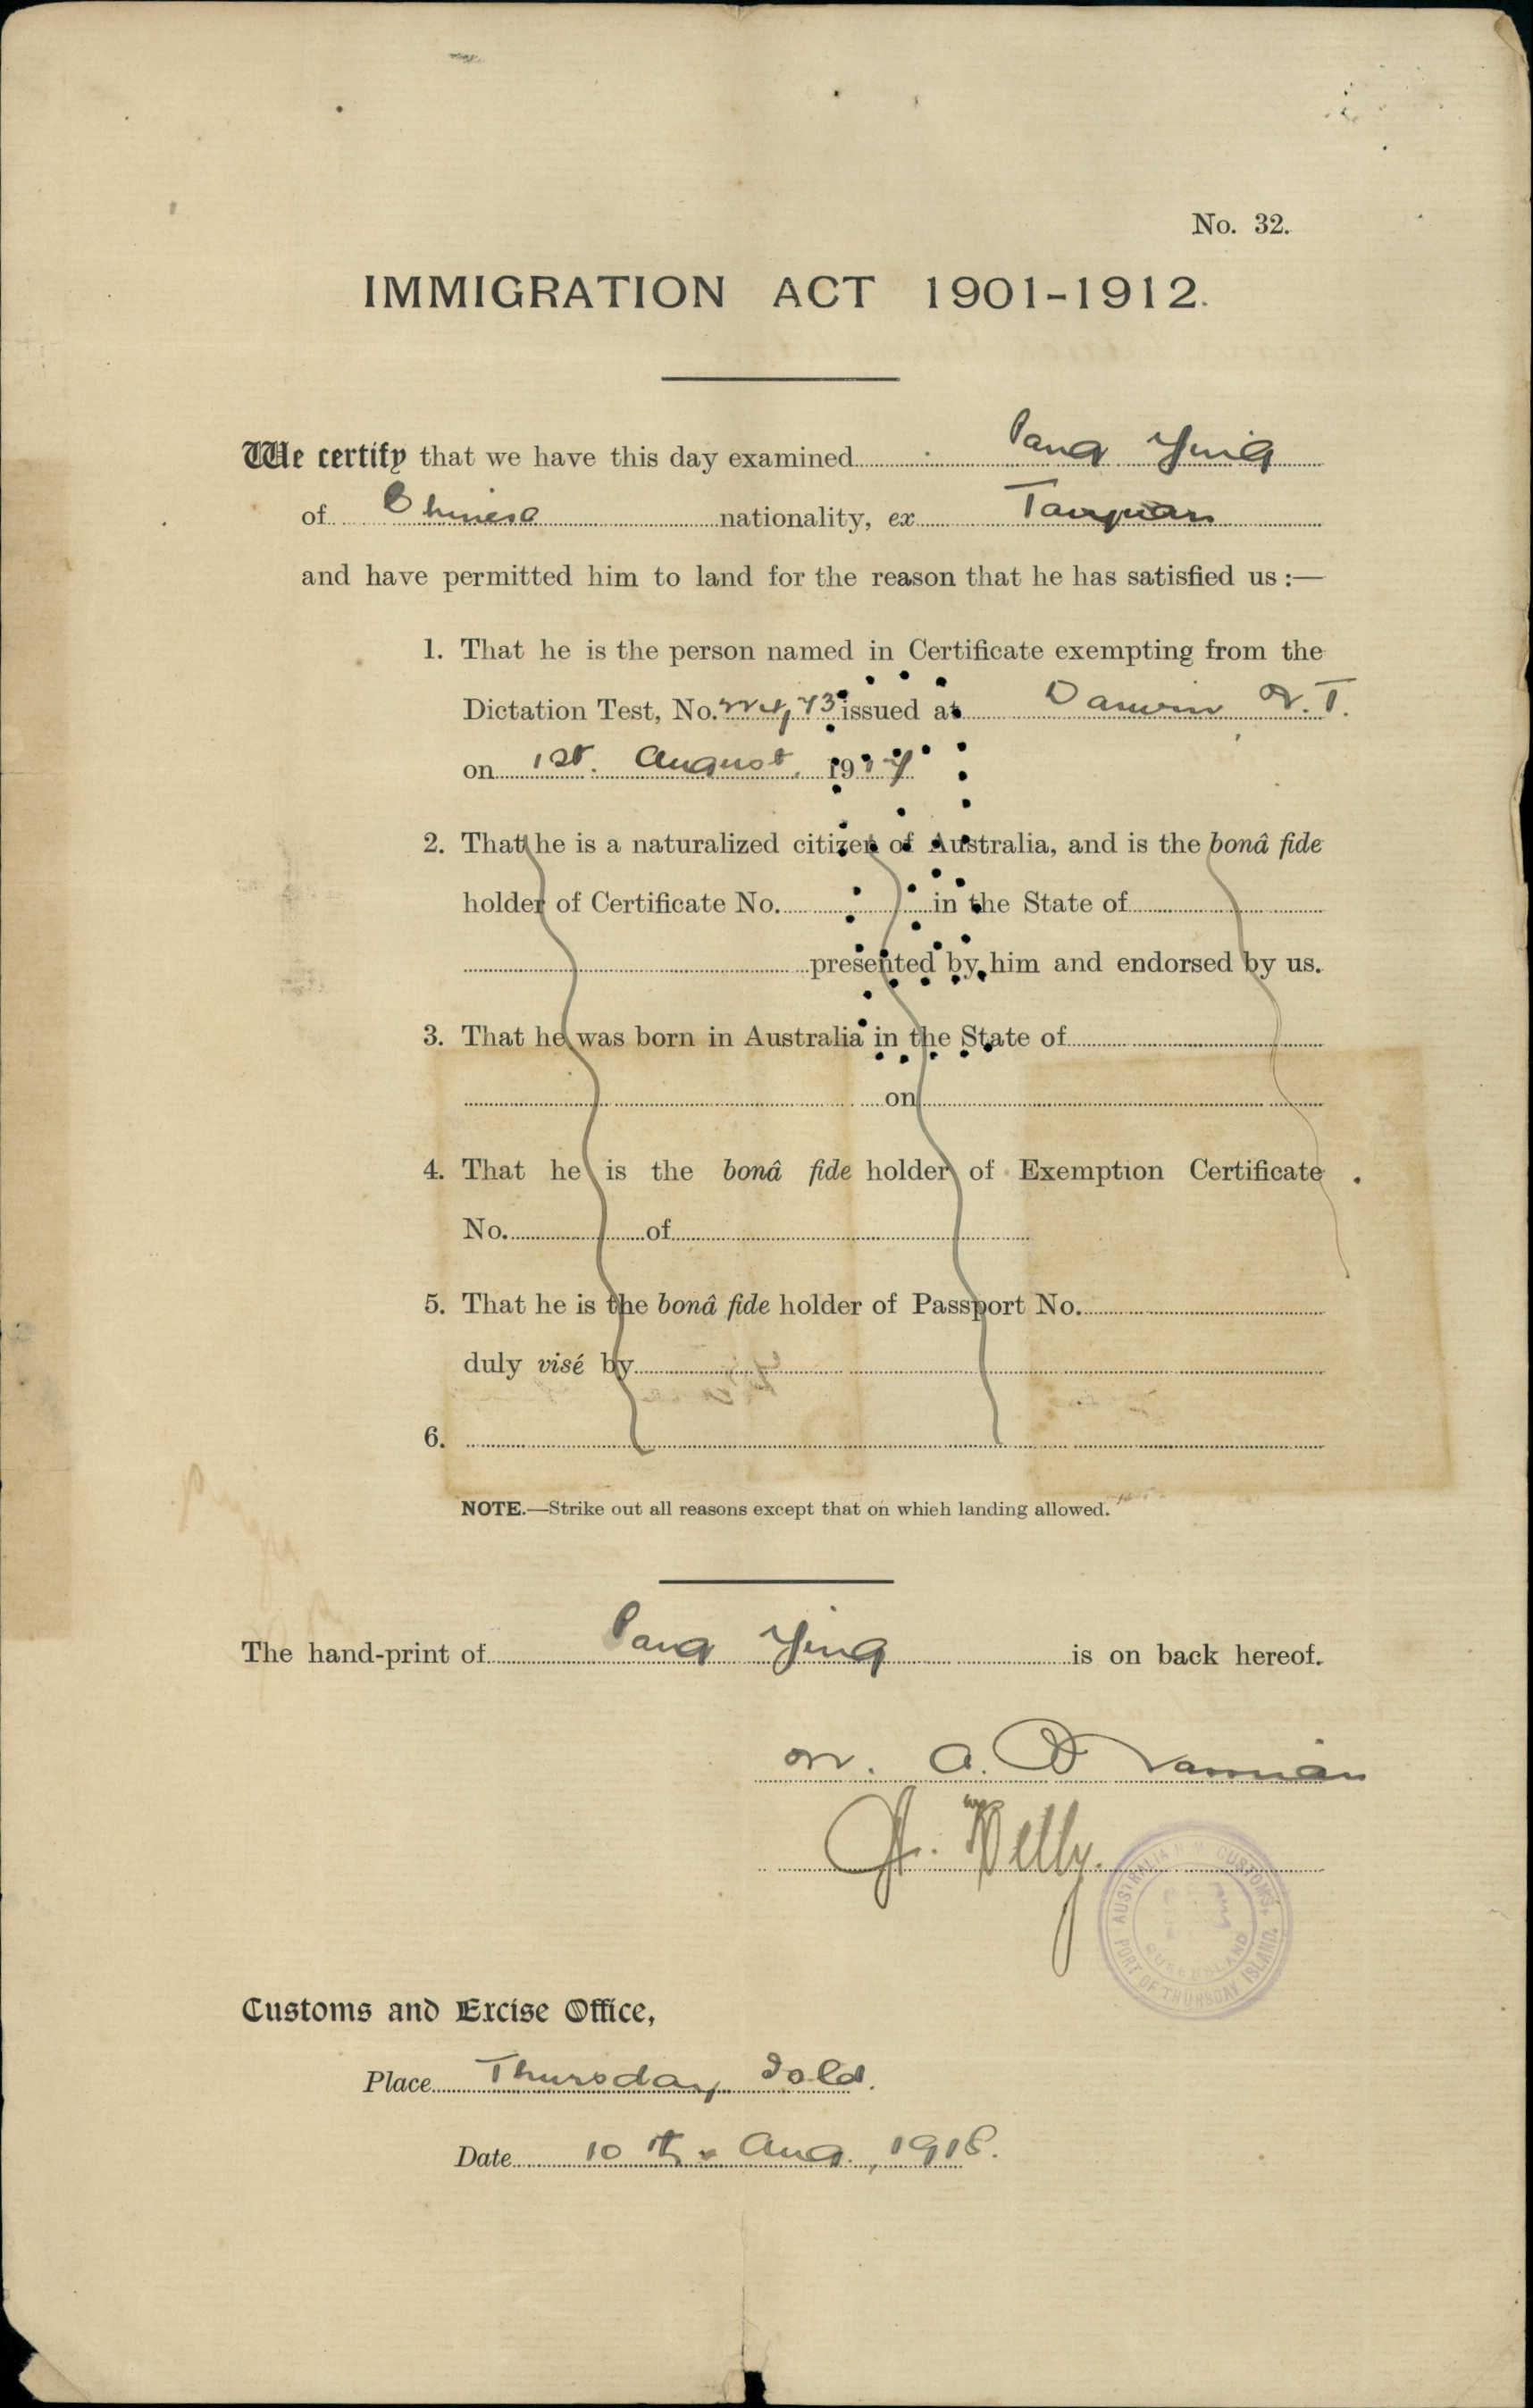 No. 32.
IMMIGRATION ACT 1901-1912.
We certify that we have this day examined Pang Ying
of Chinese nationality, ex Taiyuan
and have permitted him to land for the reason that he has satisfied us :—
1. That he is the person named in Certificate exempting from the
Dictation Test, No. issued at Darwin N.T.
on 1st. August, 191
2. That he is a naturalized citizen of Australia, and is the bonâ fide
holder of Certificate No. in the State of
presented by him and endorsed by us.
3. That he was born in Australia in the State of
on
4. That he is the bonâ fide holder of Exemption Certificate
No. of
5. That he is the bonâ fide holder of Passport No.
duly visé by
6.
NOTE.—Strike out all reasons except that on which landing allowed.
The hand-print of Pang Ying is on back hereof.
AUSTRALIA H.M. CUSTOMS,
QUEENSLAND
PORT OF THURSDAY ISLAND.
Customs and Excise Office,
Place Thursday Isld.
Date 10th Aug., 1918.